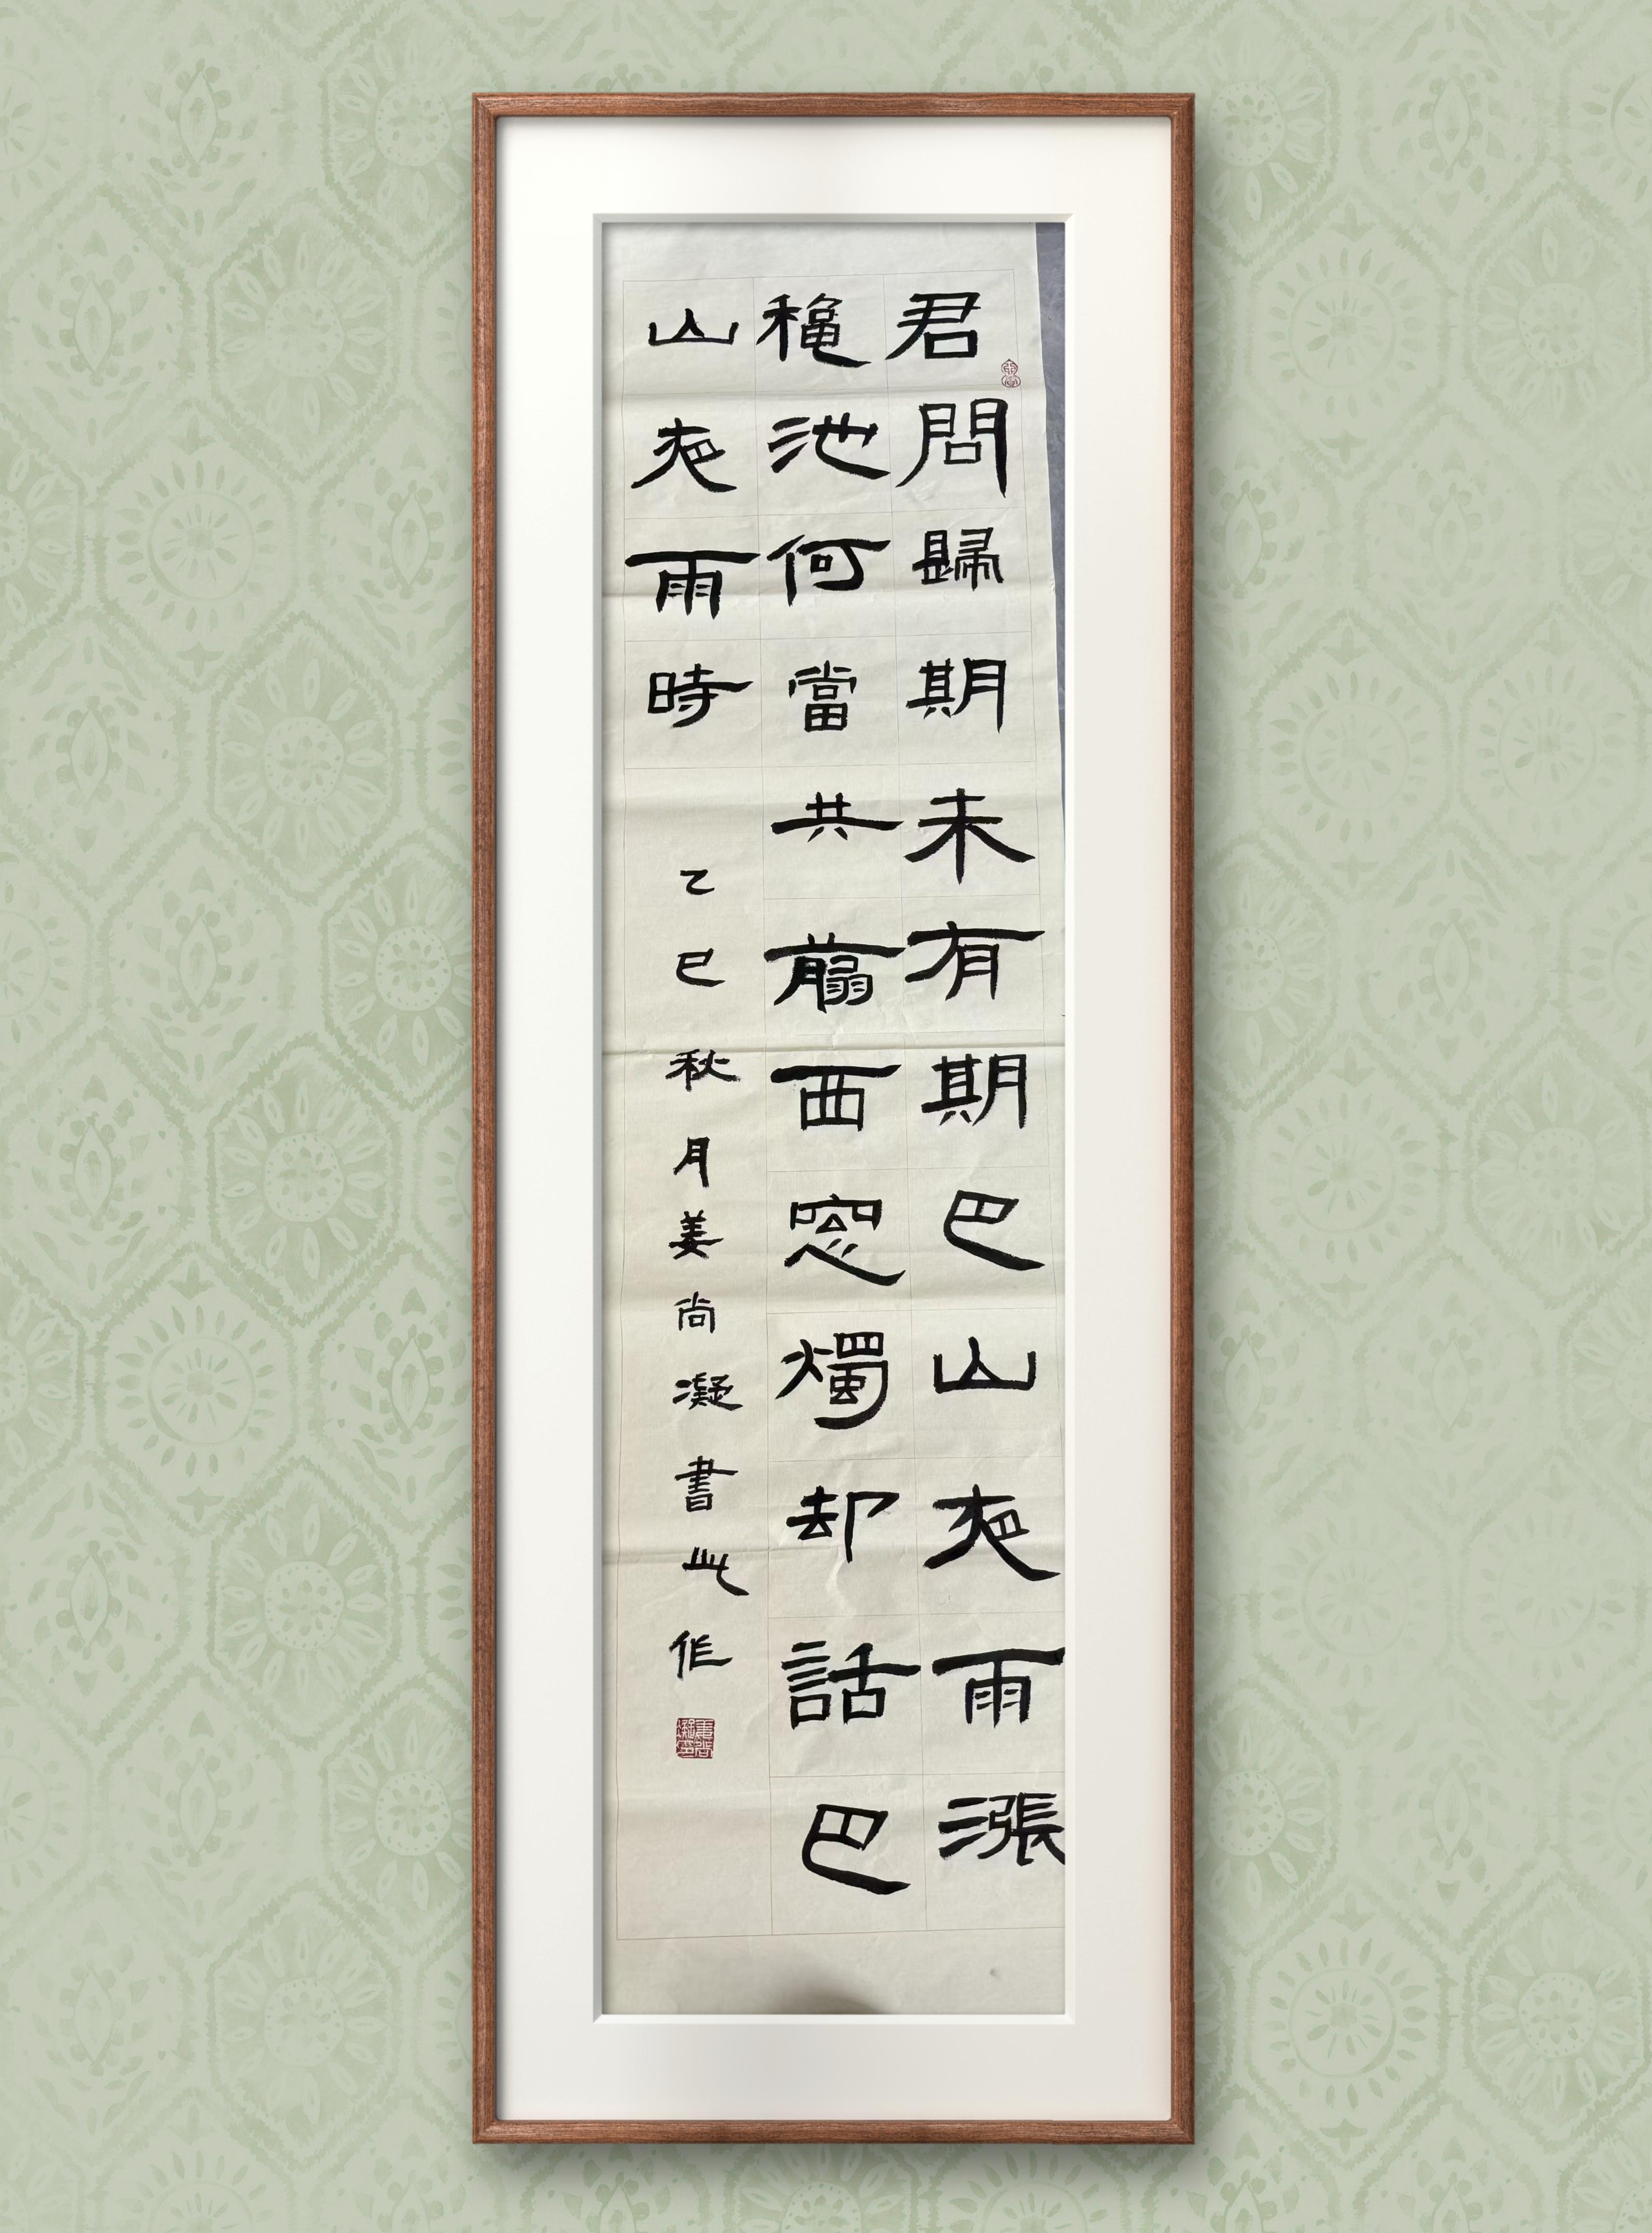 君問歸期未有期巴山夜雨漲
穐池何當共翦西窓燭却話巴
山夜雨時
乙巳秋月姜尚凝書此作
姜尚凝印